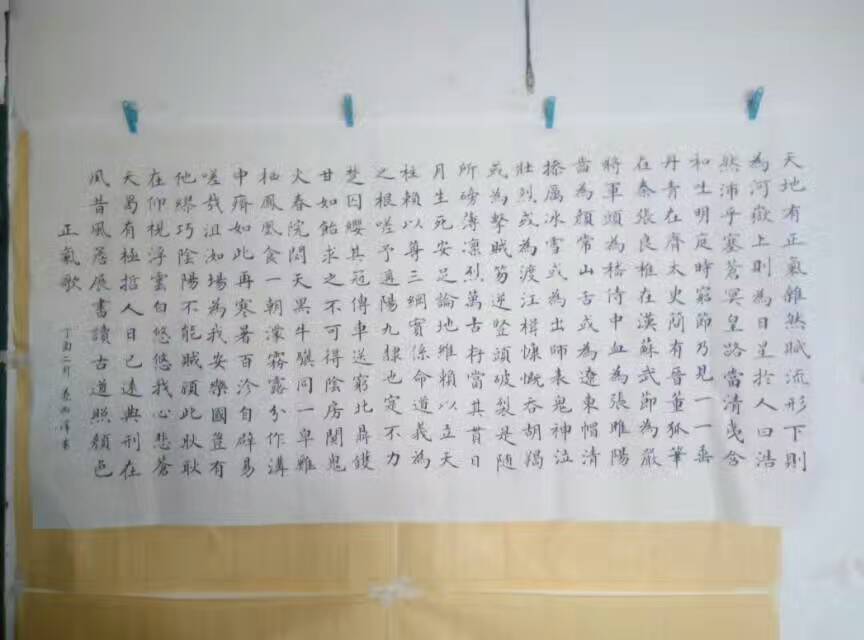 天地有正氣雜然賦流形下則
為河嶽上則為日星於人曰浩
然沛乎塞蒼冥皇路當清夷含
和吐明庭時窮節乃見一一垂
丹青在齊太史簡有晉董狐筆
在秦張良椎在漢蘇武節為嚴
將軍頭為嵇侍中血為張睢陽
齒為顏常山舌或為遼東帽清
操厲冰雪或為出師表鬼神泣
壯烈或為渡江楫慷慨吞胡羯
或為擊賊笏逆竪頭破裂是随
所磅薄凛烈萬古存當其貫日
月生死安足論地維賴以立天
柱賴以尊三綱實係命道義為
之根嗟予遘陽九隸也定不力
楚囚纓其冠傳車送窮北鼎鑊
甘如飴求之不可得陰房闃鬼
火春院閟天黑牛驥同一皁雞
栖鳳凰食一朝濛霧露分作溝
中瘠如此再寒暑百沴自辟易
嗟哉沮洳場為我安樂國豈有
他繆巧陰陽不能賊顧此耿耿
在仰視浮雲白悠悠我心悲蒼
天曷有極哲人日已遠典刑在
夙昔風簷展書讀古道照顏色
正氣歌
丁酉二月